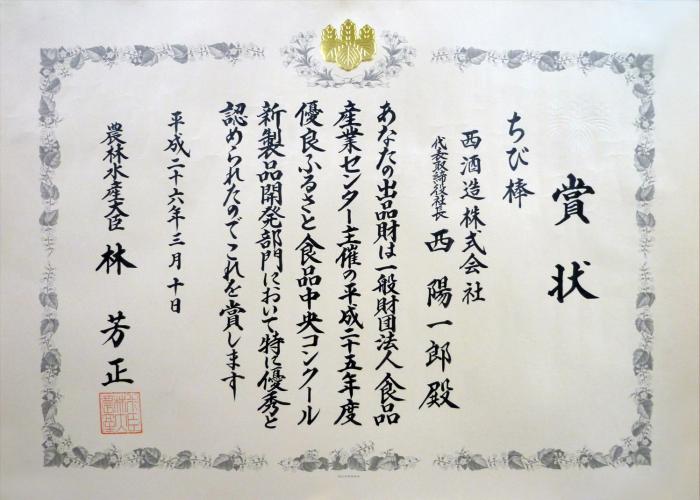 賞状
ちび棒
西酒造株式会社
代表取締役社長 西陽一郎殿
あなたの出品財は一般財団法人食品
産業センター主催の平成二十五年度
優良ふるさと食品中央コンクール
新製品開発部門において特に優秀と
認められたのでこれを賞します
平成二十六年三月十日
農林水産大臣 林芳正